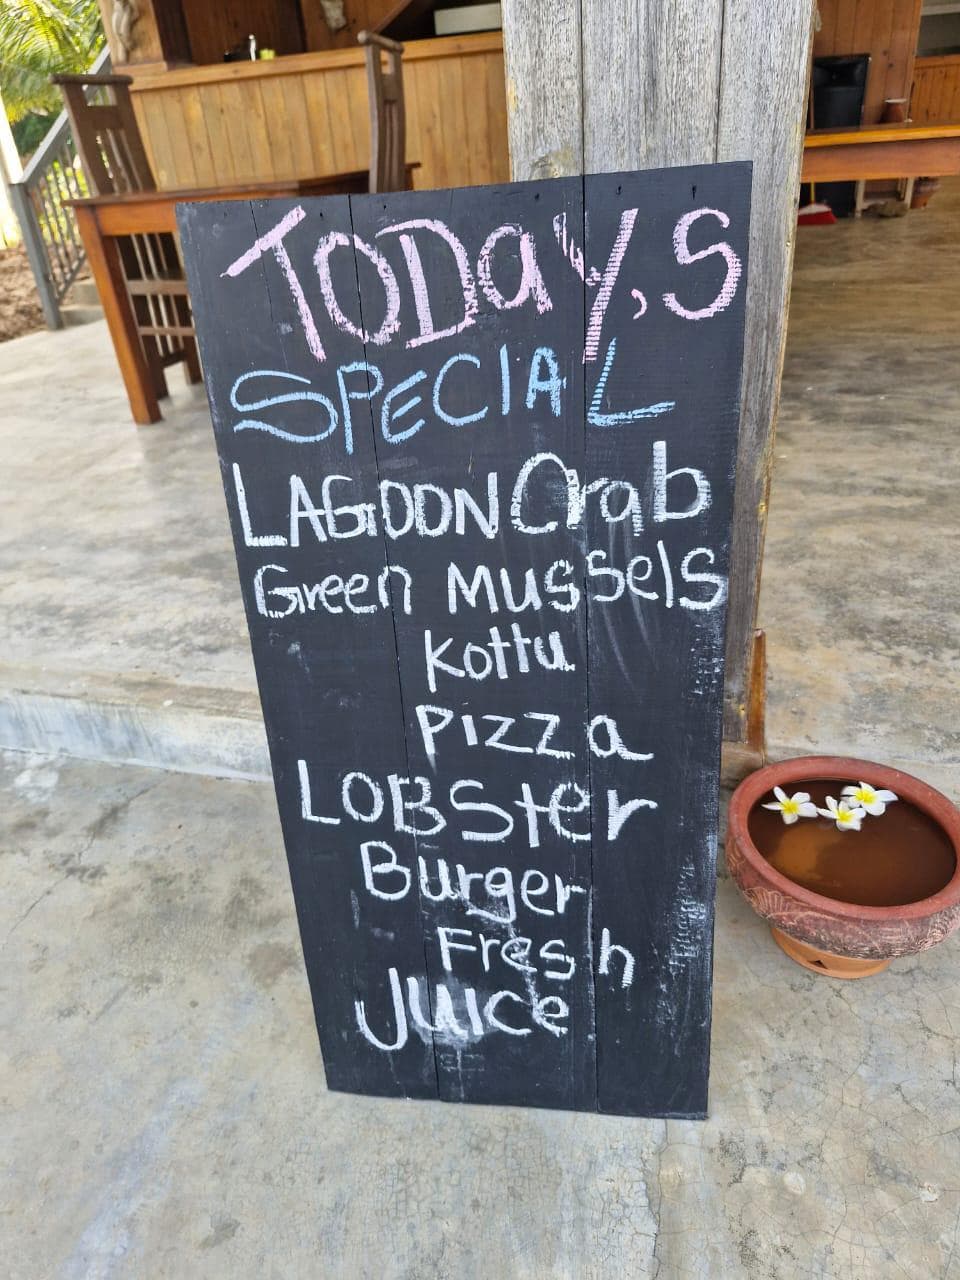 TODay,s
SPECIAL
LAGOON Crab
Green Mussels
Kottu
Pizza
LOBSter
Burger
Fresh
Juice